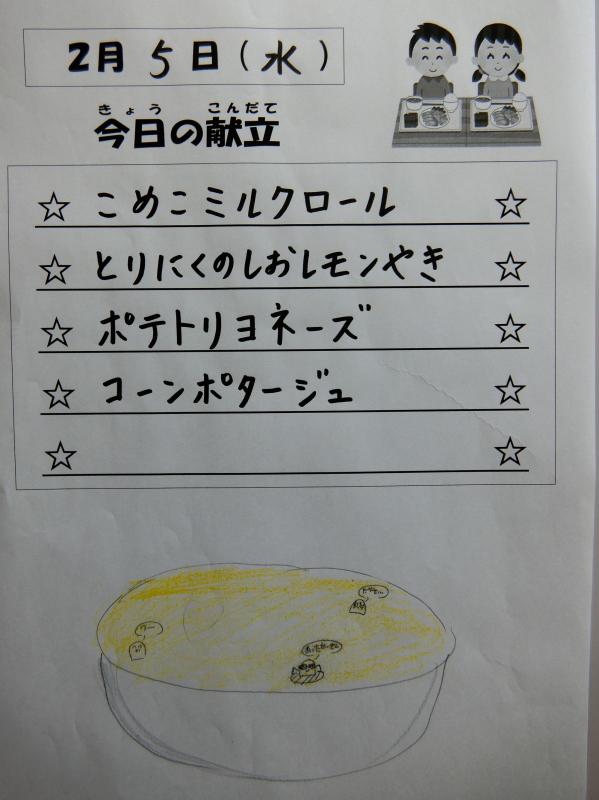 2月 5日(水)
きょう こんだて
今日の献立
☆ こめこミルクロール ☆
☆ とりにくのしおレモンやき ☆
☆ ポテトリヨネーズ ☆
☆ コーンポタージュ ☆
☆ ☆